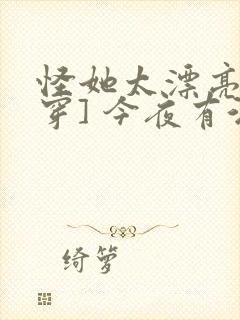 怪她太漂亮
穿]今夜有
绮萝